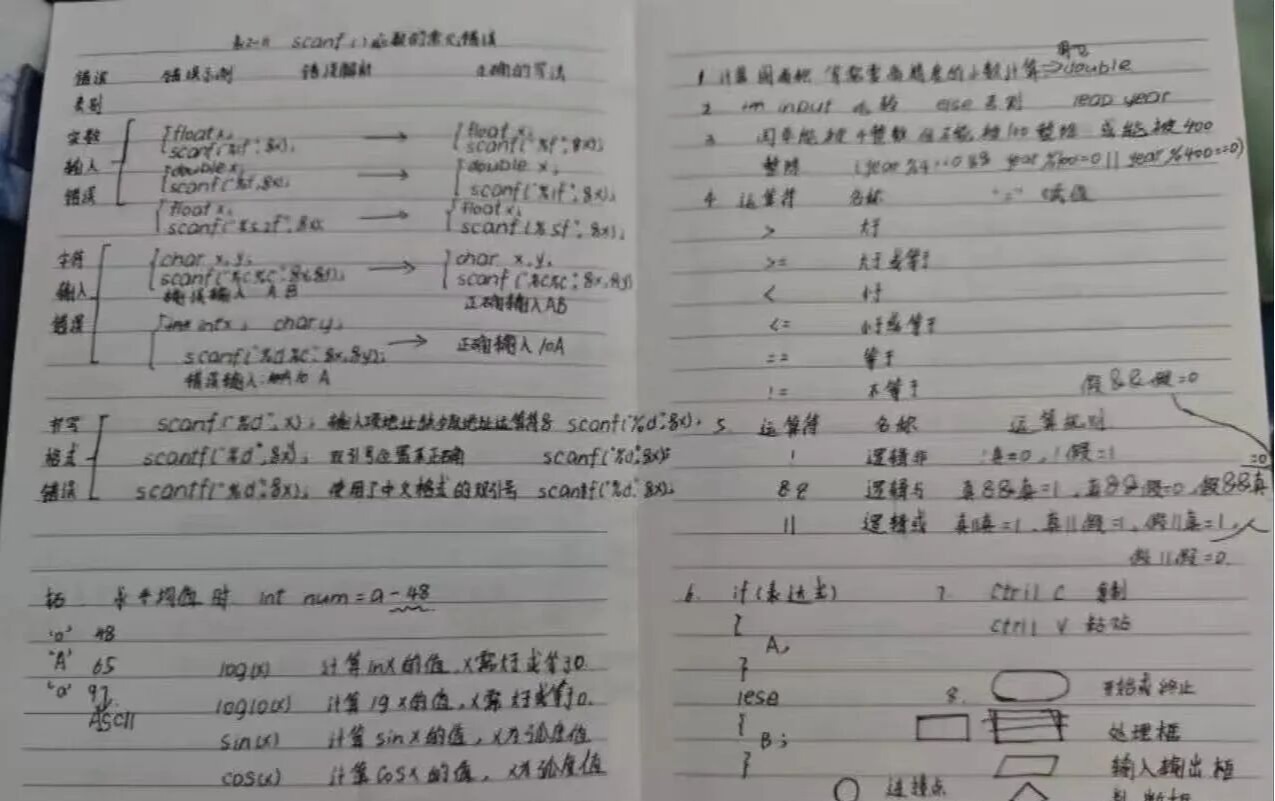 表2-11 scanf()函数的常见错误
错误 错误示例 错误解析 正确的写法
类别
实数 float x; float x;
scanf("%lf",&x); → scanf("%f",&x);
输入 double x; double x;
错误 scanf("%f",&x); → scanf("%lf",&x);
float x; float x;
scanf("%5.2f",&x); → scanf("%5f",&x);
字符 char x,y; char x,y;
输入 scanf("%c%c",&x,&y); → scanf("%c%c",&x,&y)
错误输入 A B 正确输入AB
错误 int x; char y;
scanf("%d%c",&x,&y); → 正确输入 10A
错误输入: 10 A
书写 scanf("%d",x); 输入项地址缺少取地址运算符& scanf("%d",&x);
格式 scanf("%d",&x); 双引号位置不正确 scanf("%d",&x);
错误 scantf("%d",&x); 使用了中文格式的双引号 scantf("%d",&x);
求平均值时 int num=a-48
'0' 48
'A' 65 log(x) 计算lnx的值,x需大于或等于0.
'a' 97 log10(x) 计算lgx的值,x需大于或等于0.
ASCII
sin(x) 计算sinx的值,x为弧度值
cos(x) 计算cosx的值,x为弧度值
1 计算圆面积 的小数计算⇒double
2 input 函数 else 否则 leap year
3 闰年能被4整除但不能被100整除 或能被400
整除 (year%4==0&& year%100=0 || year%400==0)
4 运算符 名称 "=" 赋值
> 大于
>= 大于或等于
< 小于
<= 小于或等于
== 等于
!= 不等于
假&&假=0
5. 运算符 名称 运算规则
! 逻辑非 !真=0,!假=1
&& 逻辑与 真&&真=1,真&&假=0,假&&真=0
|| 逻辑或 真||真=1,真||假=1,假||真=1,
假||假=0.
6. if(表达式) 7. Ctril C 复制
{ Ctril V 粘贴
A;
}
lese 8. 开始或终止
{
B; 处理框
} 输入输出框
连接点 判断框